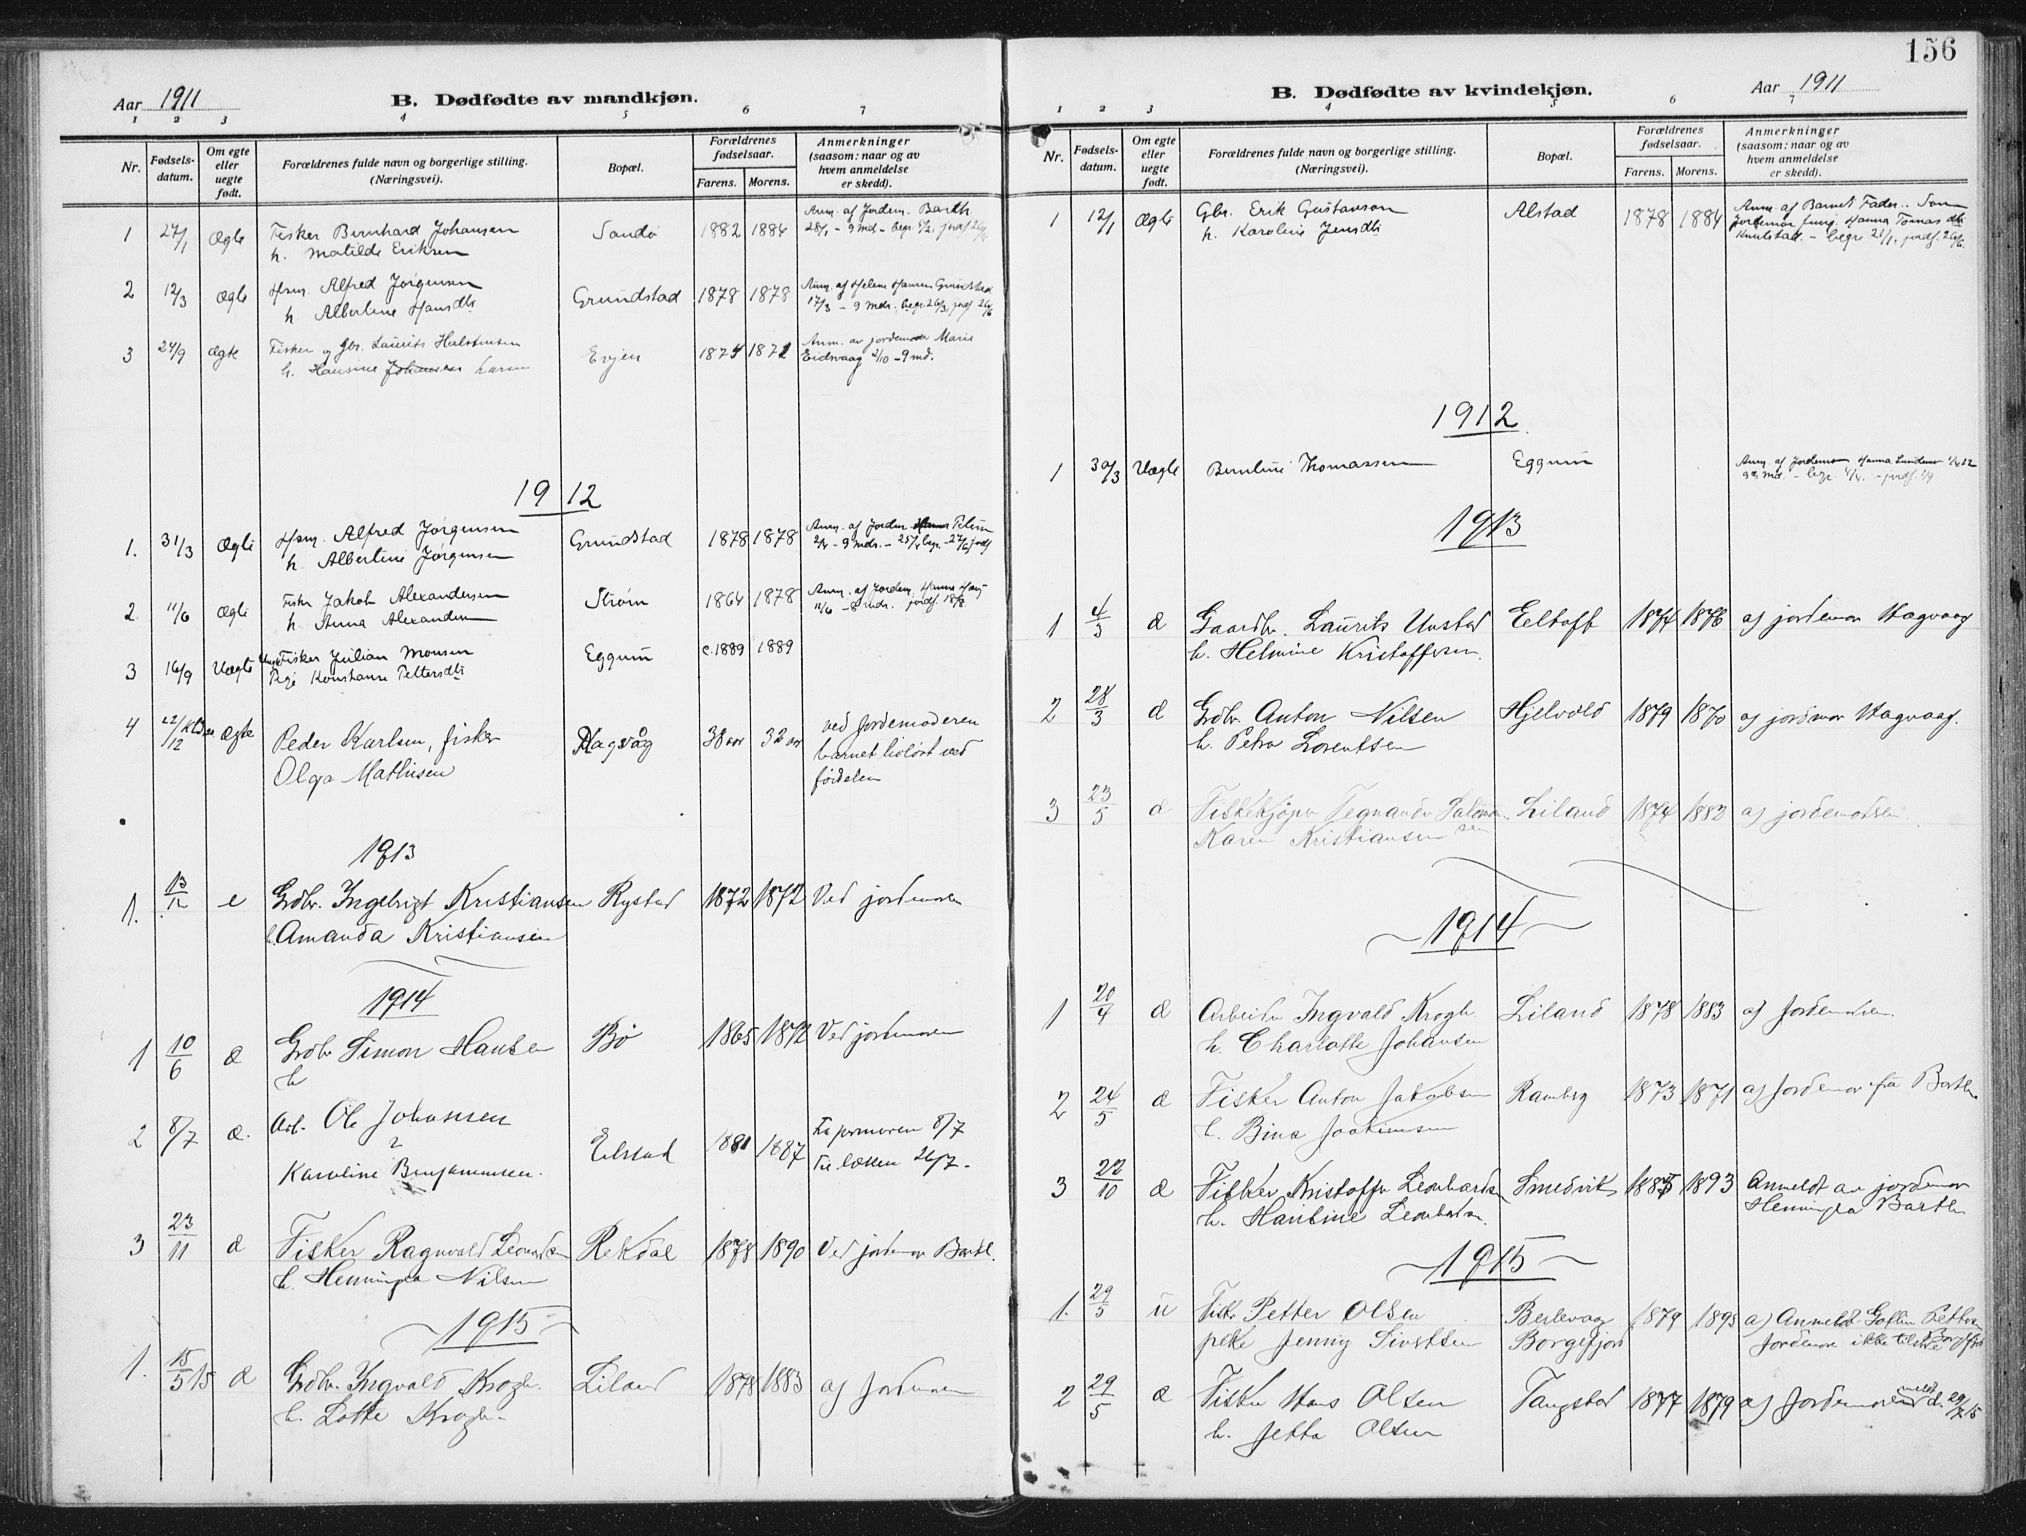 Aar 1911
B. Dødfødte av mandkjøn.
1 2 3 4 5 6 7
Nr. Fødsels-datum. Om egte eller uegte født. Forældrenes fulde navn og borgerlige stilling. (Næringsvei). Bopæl. Forældrenes fødselsaar. Farens. Morens. Anmerkninger (saasom: naar og av hvem anmeldelse er skedd).
1 27/1 Ægte Fisker Bernhard Johansen Sandø 1882 1884 Anm. af Jordem. Barth
h. Matilde Eriksen 28/1 - 9 md - begr.
2 12/3 Ægte Hsm. Alfred Jørgensen Grundstad 1878 1878 Anm. af Helene Hansen Grundstad
h. Albertine Hansdtr 17/3 - 9 mdr. begr. 26/3, jordf. 26/6
3 24/9 Ægte Fisker og Gbr. Laurits Halstensen Evjen 1874 1872 Anm. av jordemoder Marie
h. Hansine Johansen Larsen Eidsvaag 2/10 - 9 md.
1912
1. 31/3 Ægte Hsm. Alfred Jørgensen Grundstad 1878 1878 Anm. af Jordem.
h. Albertine Jørgensen 2/4 - 9 mdr. - 25/4 begr. - 27/6 jordf
2. 11/6 Ægte Fisker Jakob Alexandersen Strøm 1864 1878 Anm. af Jordem. Hanna
h. Anna Alexandersen 11/6 - 8 mdr. jordf. 18/8.
3 16/9 Uægte Ungk. Fisker Julian Monsen Eggum c. 1889 1889
Pige Konstanse Pettersdtr
4 22/12 Ægte Peder Karlsen, fisker Hagvåg 38 aar 32 aar ved Jordemoderen
Olga Mathisen barnet livløst ved
fødselen
1913
1. 13/12 e Grdbr. Ingebrigt Kristiansen Rystad 1872 1872 Ved jordmoren
h. Amanda Kristiansen
1914
1 10/6 æ Grdbr Simon Hansen Bø 1865 1872 Ved jordmoren
h
2 8/7 æ. Arb. Ole Johansen Eilstad 1881 1887 8/7
Karoline Benjaminsen. 26/7.
3 23/11 æ Fisker Ragnvald Leonardsen Rekdal 1878 1890 Ved jordemor Barth.
h. Henningea Nilsen
1915
1. 15/5 15 æ Grdbr. Ingvald Krogh. Liland 1878 1883 af Jordmoren
h. Lotte Krogh.
156
B. Dødfødte av kvindekjøn.
Aar 1911
1 2 3 4 5 6 7
Nr. Fødsels-datum. Om egte eller uegte født. Forældrenes fulde navn og borgerlige stilling. (Næringsvei). Bopæl. Forældrenes fødselsaar. Farens. Morens. Anmerkninger (saasom: naar og av hvem anmeldelse er skedd).
1 12/1 Ægte Gbr. Erik Gustavson Alstad 1878 1884 Anm. af Barnets Fader.
h. Karoline Jensdtr Hanna Tomasdtr
Knutstad - begr 21/1, jordf. 26/6.
1912
1 30/3 Uægte Berntine Thomassen Eggum Anm. af Jordemor Hanna
1913
1 4/3 æ Gaardbr. Laurits Unstad Eltoft 1874 1876 af jordemor Hagvaag
h. Helmine Kristoffersen.
2 28/3 æ Grdbr. Anton Nilsen Hjelvold 1879 1870 af jordmor Hagvaag.
h. Petra Lorentsen
3 23/5 æ Fiskekjøper Tegnander Salomonsen Liland 1874 1883 af jordemoderen.
Karen Kristiansen
1914
1 20/4 æ Arbeider Ingvald Krogh. Liland 1878 1883 af Jordemoren.
h. Charlotte Johansen
2 24/5 æ Fisker Anton Jakobsen Ramberg 1873 1871 af Jordemor fru Barth
h. Bina Joakimsen
3 22/10 æ Fisker Kristoffer Leonhardsen Smedvik 1885 1893 Anmeldt av jordemor
h. Leonhardsen. Henningea Barth
1915
1. 29/5 u Fisker Petter Olsen 1879 1895 a) Anmeldt
pike Jenny Sivertsen Borgefjord Jordemor ikke tilstede
2 29/5 æ Fisker Hans Olsen Tangstad 1877 1879 af Jordemoren meldt d. 29/7 15
h. Jetta Olsen